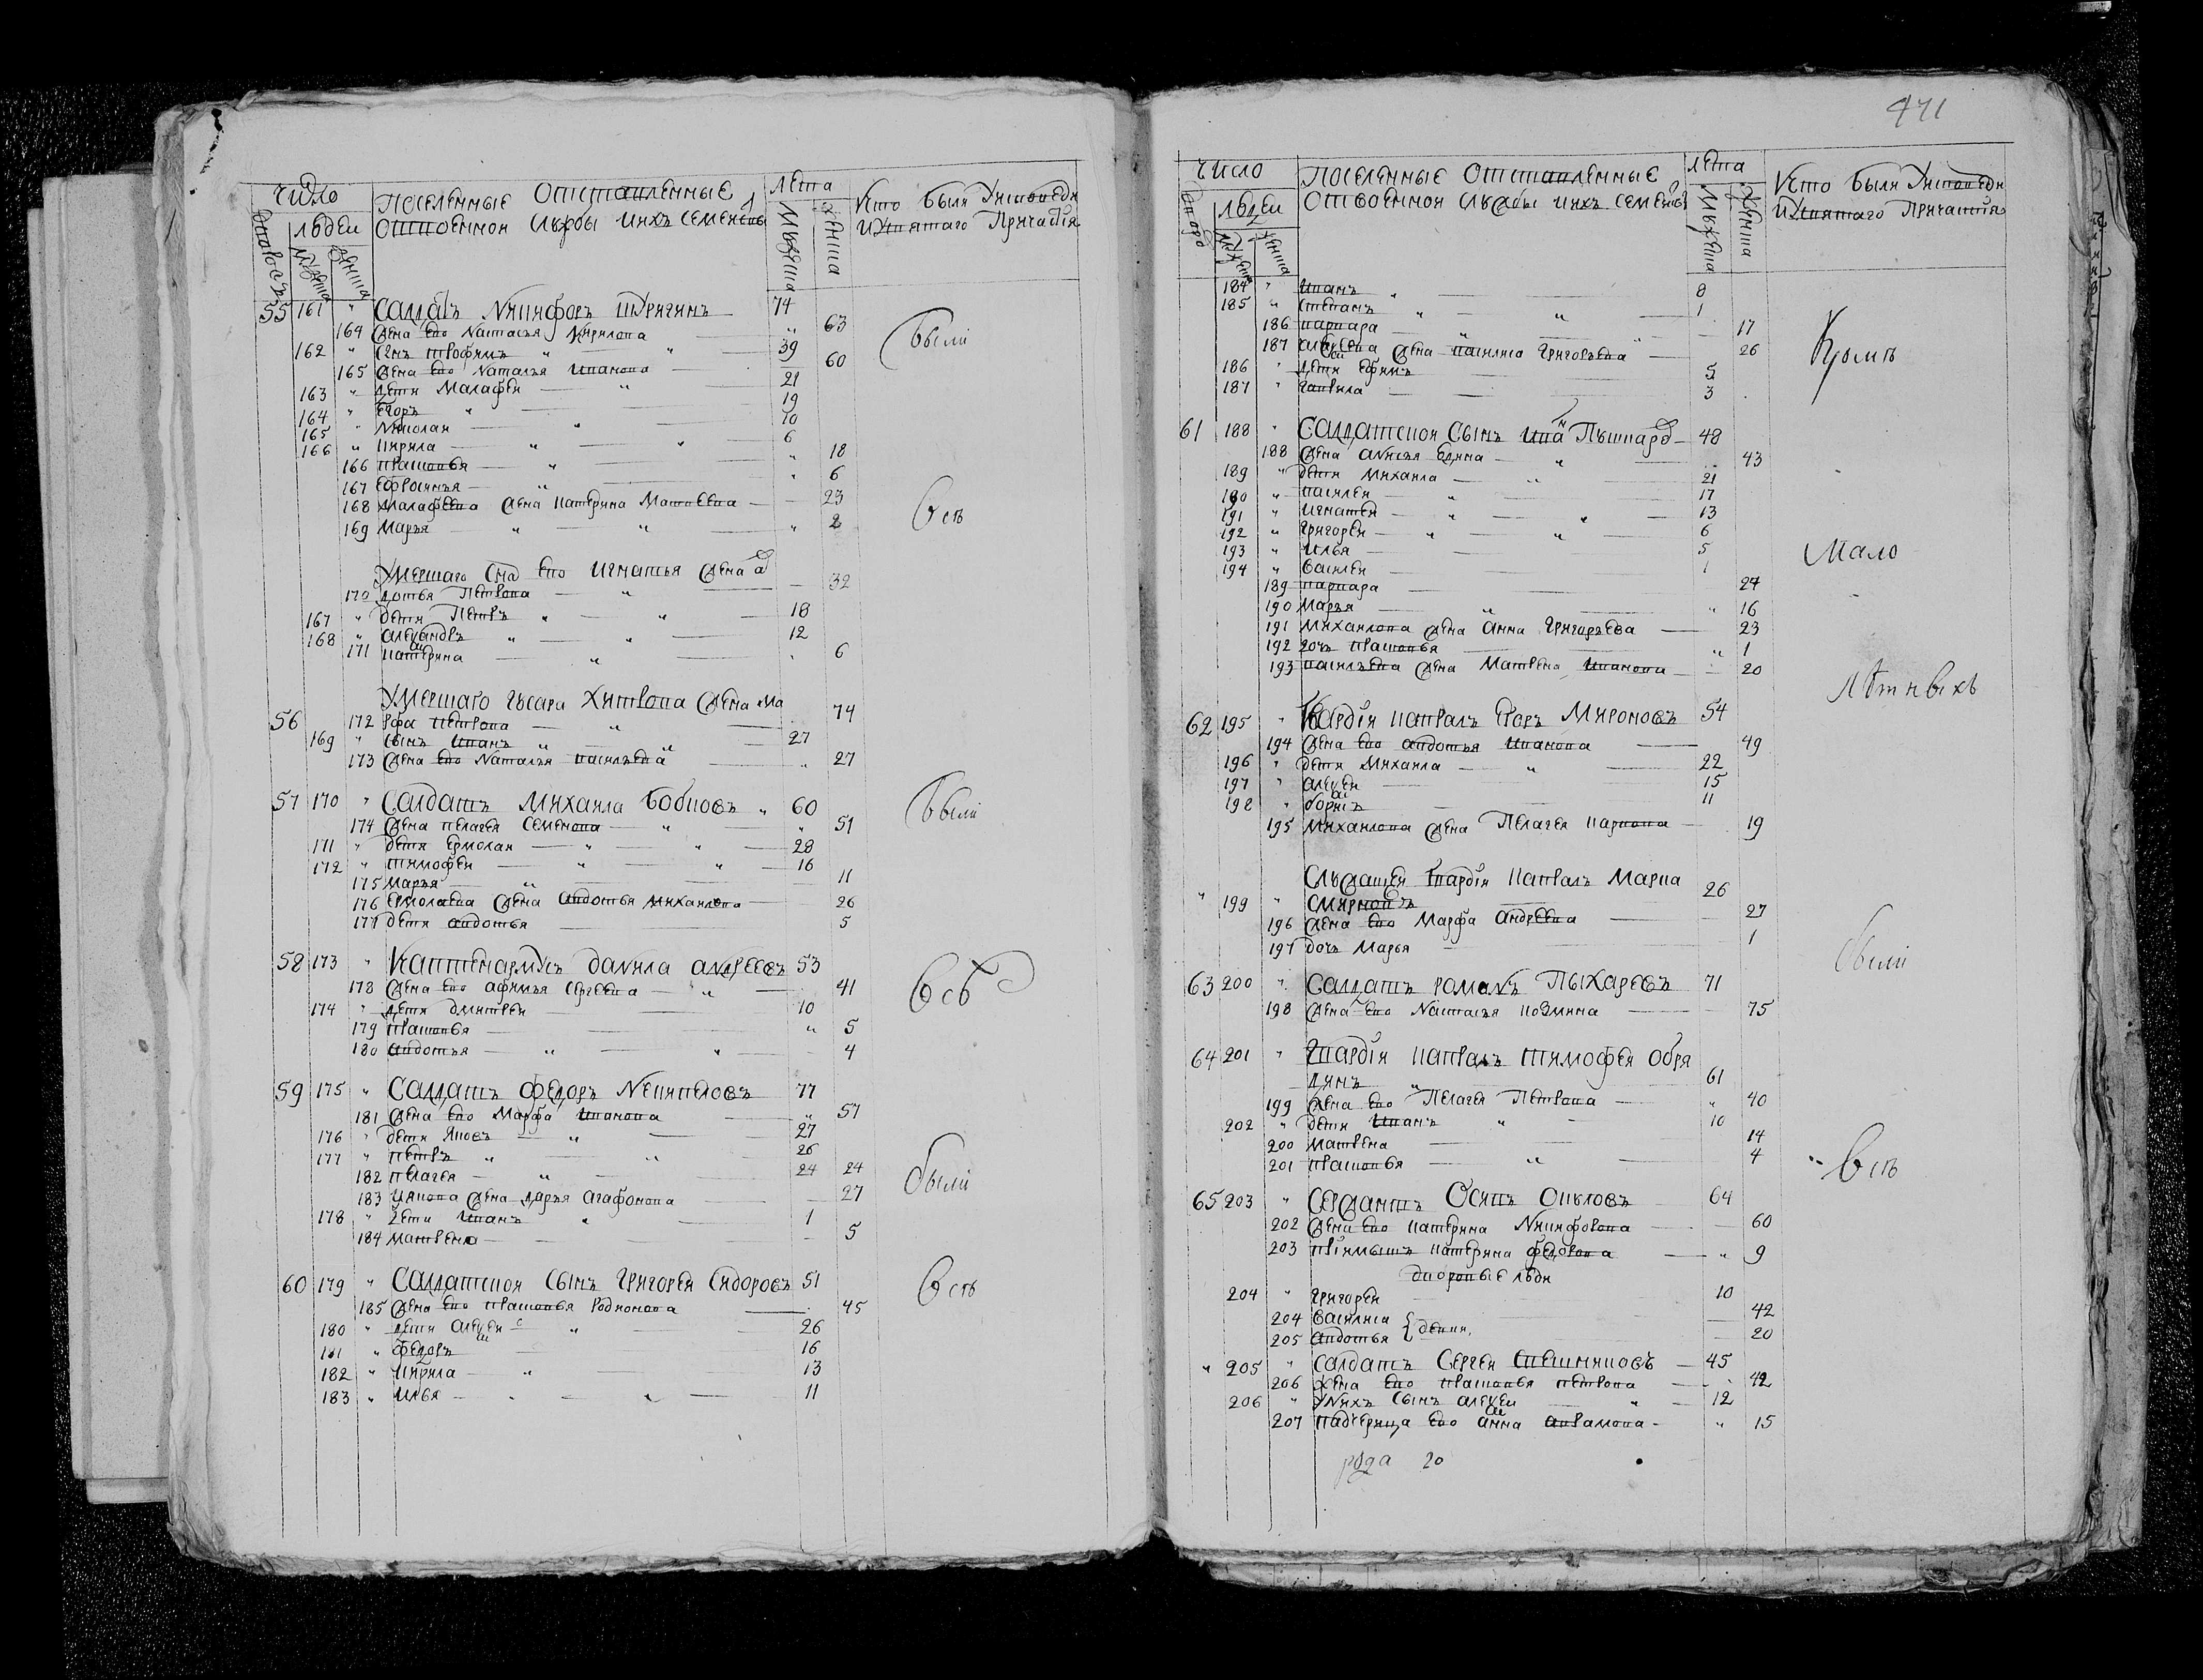 471
Число
людеи
дворовъ
мужеска
женска
Поселенные отставленные
отвоеннои службы инхъ семеиствъ
лета
мужеска
женска
Кто были Уисповеди
и Усвятаго Причастія
55 161 " Салдатъ Никифоръ Шдрягинъ 74
164 Жена ево Наталья Кирилова " 63
162 " Сынъ трофимъ " " 39
165 Жена ево Наталья иванова 60
163 " дети Малафеи " 21
164 " Егоръ " 19
165 " Николаи " 10
166 " Кирила " " 6
166 прасковья " " 18
167 Ефросинья " " 6
168 Малафеева Жена Катерина Матвеева 23
169 Марья " " " 2
были
Всѣ
Умершаго сна ево Игнатья Жена а
170 дотья Петрова " 32
167 " дети Петръ " " 18
168 " александръ " " 12
171 Катерина " 6
Умершаго гусара Хитрова Жена Ма
56 172 рфа петрова " 74
169 " сынъ иванъ " " 27
173 Жена ево Наталья васильева " 27
57 170 " Салдатъ Михаила Бобковъ " 60
174 Жена пелагея Семенова " " 51
171 " дети Ермолаи " " 28
172 " тимофеи " " 16
175 Марья " 11
176 Ермолаева Жена авдотья михаилова 26
177 дети авдотья 5
были
58 173 " Каптенармусъ данила андреевъ 53
178 Жена ево афимья сергеева " 41
174 " дети дмитреи 10
179 прасковья " 5
180 авдотья " " 4
Всѣ
59 175 " Салдатъ Федоръ Непипеловъ 77
181 Жена ево Марфа иванова " 57
176 " дети яковъ " 27
177 " петръ " " 26
182 пелагея " 24 24
183 Якова Жена дарья агафонова 27
178 " дети иванъ " 1
184 матрена 5
были
60 179 " Салдатскои сынъ григореи сидоровъ 51
185 Жена ево прасковья родионова 45
180 " дети алексеи " 26
181 " федоръ 16
182 " Кирила " 13
183 " Илья " " 11
Всѣ
Число
людеи
мужеска
женска
Поселенные отставленные
отвоеннои службы инхъ семеиствъ
лета
мужеска
женска
Кто были Уисповеди
и Усвятаго Причастія
184 " иванъ " 8
185 " степанъ " " 1
186 варвара " 17
187 алексеева Жена василиса григорьева " 26
186 " дети ефимъ 5
187 " гаврила 3
Кромѣ
61 188 " Салдатскои сынъ иванъ Пушкаро 48
188 Жена анисья " 43
189 " дети михаила " 21
190 " василеи " 17
191 " Игнатеи " " 13
192 " григореи " " 6
193 " Илья 5
194 " василеи 1
189 варвара 24
190 Марья " " 16
191 Михаилова Жена анна григорьева 23
192 дочь прасковья " 1
193 васильева Жена Матрена иванова 20
Мало
Лѣтныхъ
62 195 " Гвардіи капралъ Егоръ Мироновъ 54
194 Жена ево авдотья иванова 49
196 " дети Михаила " 22
197 " алексеи 15
198 " борисъ 11
195 Михаилова Жена Пелагея карпова 19
Служащеи гвардіи Капралъ Марка
" 199 " Смирновъ 26
196 Жена ево Марфа андреева 27
197 дочь Марья 1
были
63 200 " Салдатъ романъ Пыхаревъ 71
198 Жена ево Наталья козмина 75
64 201 " Гвардіи капралъ тимофеи обря
динъ " 61
199 Жена ево Пелагея Петрова " 40
202 " дети иванъ " 10
200 матрена 14
201 прасковья " 4
Всѣ
65 203 " Сержантъ Осипъ Окуловъ 64
202 Жена ево катерина Никифорова 60
203 пріимышъ катерина федорова " 9
дворовые люди
204 " григореи 10
204 василиса 42
205 авдотья девки. 20
" 205 " Салдатъ Сергеи 45
206 Жена ево прасковья петрова 42
206 " У нихъ сынъ алексеи " 12
207 падчерица ево анна аврамова " 15
рода 20